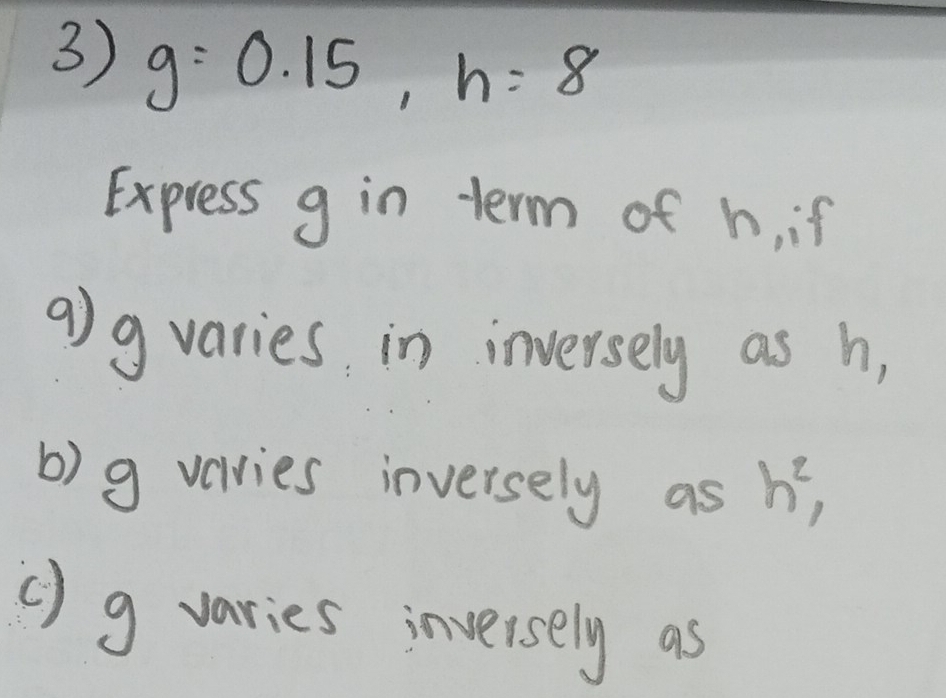 3) g = 0.15, h = 8
Express g in term of h, if
a) g varies in inversely as h,
b) g varies inversely as h²,
c) g varies inversely as